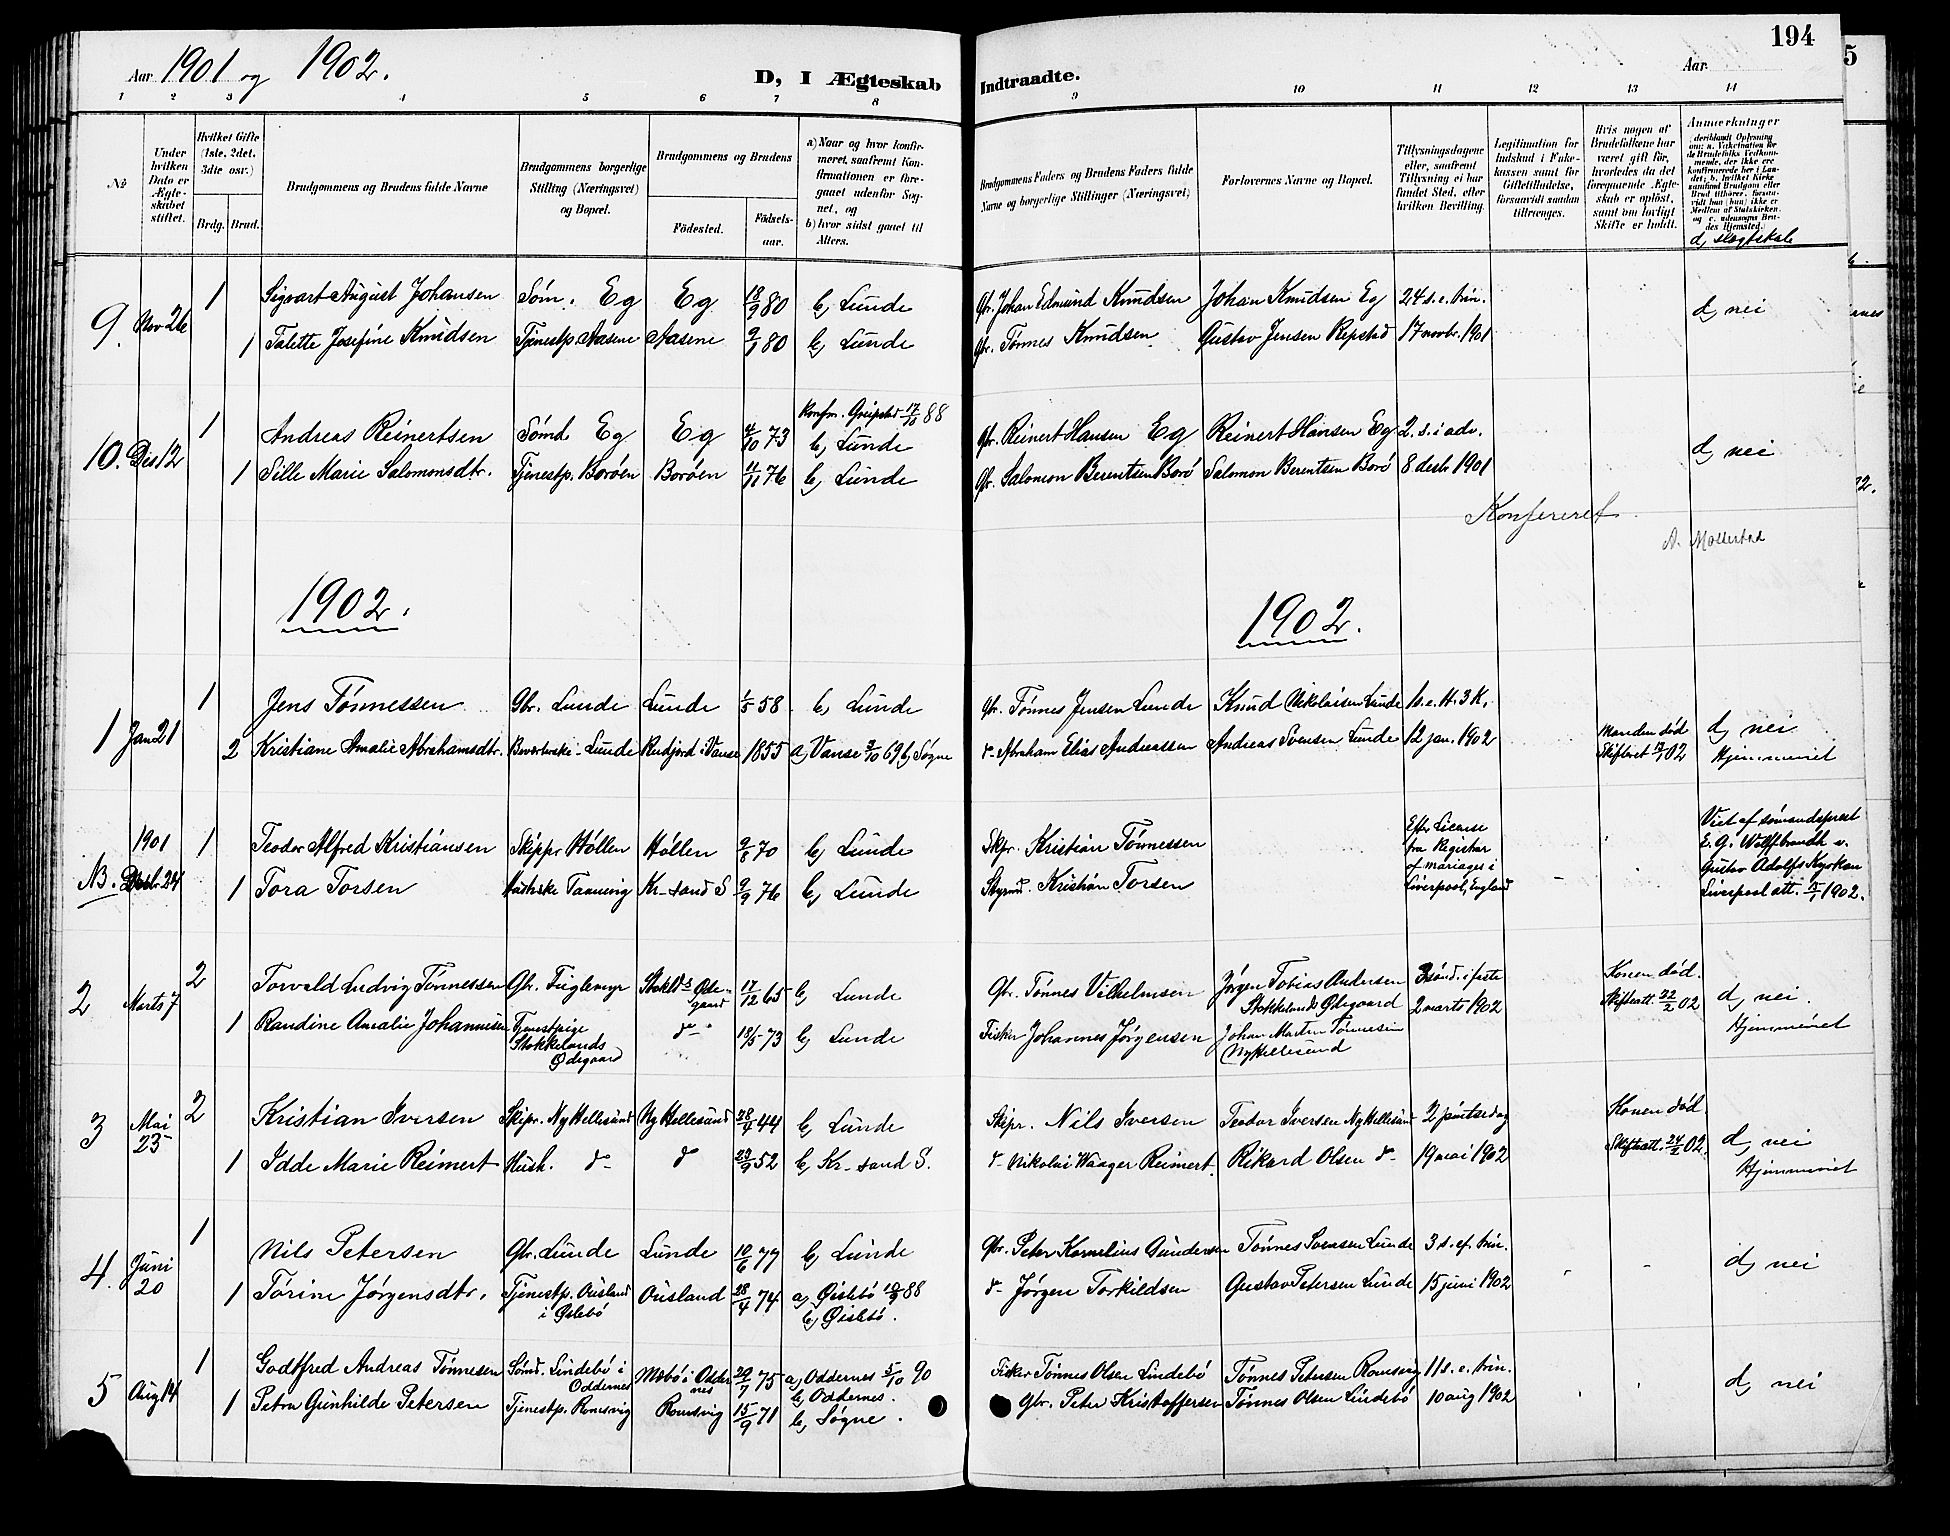 194
Aar 1901 og 1902. D, I Ægteskab Indtraadte. Aar
1 2 3 4 5 6 7 8 9 10 11 12 13 14
№
Under hvilken Dato er Ægteskabet stiftet.
Hvilket Gifte (1ste, 2det, 3die osv.)
Brdg. Brud.
Brudgommens og Brudens fulde Navne
Brudgommens borgerlige Stilling (Næringsvei) og Bopæl.
Brudgommens og Brudens
Födested. Födsels-aar.
a) Naar og hvor konfirmeret, saafremt Konfirmationen er foregaaet udenfor Sognet, og
b) hvor sidst gaaet til Alters.
Brudgommens Faders og Brudens Faders fulde Navne og borgerlige Stillinger (Næringsvei)
Forlovernes Navne og Bopæl.
Tillysningsdagene eller, saafremt Tillysning ei har fundet Sted, efter hvilken Bevilling.
Legitimation for Indskud i Enkekassen samt for Giftetilladelse, forsaavidt saadan tiltrænges.
Hvis nogen af Brudefolkene har været gift før, hvorledes da det foregaaende Ægteskab er oplöst, samt om lovligt Skifte er holdt.
Anmærkninger
d, slægtskab
9. Nov 26 1 Sigvart August Johansen Søm. Eg Eg 18/9 80 b, Lunde Gbr. Johan Edmund Knudsen Johan Knudsen Eg 24 s. e. trin. d, nei
1 Talette Josefine Knudsen Tjenestp. Aasene Aasene 9/1 80 b, Lunde Gbr. Tønnes Knudsen Gustav Jensen Repstad 17 novbr. 1901
10. Des 12 1 Andreas Reinertsen Sømd Eg Eg 4/10 73 Konfm. Greipstad 17/6 88 b, Lunde Gbr. Reinert Hansen Eg Reinert Hansen Eg 2. s. i adv. d, nei
1 Sille Marie Salomonsdtr. Tjenestp. Borøen Borøen 4/11 76 b, Lunde Gbr. Salomon Berentsen Borø Salomon Berentsen Borø 8 desbr 1901
Konfereret
A. Mollestad
1902. 1902.
1 Jan 21 1 Jens Tønnessen Gbr. Lunde Lunde 1/5 58 b, Lunde Gbr. Tønnes Jensen Lunde Knud Nikolaisen Lunde 1 s. e. H. 3 K.
2 Kristiane Amalie Abrahamsdtr. Lunde Rudjord i Vanse 1855 a, Vanse 3/10 69 b, Søgne d- Abraham Elias Andreassen Andreas Svensen Lunde 12 jan. 1902 Manden død Skifteret 17/1 02 d, nei Hjemmeviet
NB. 1901 Desb. 24 1 Teodor Alfred Kristiansen Skippr Høllen Høllen 9/8 70 b, Lunde Skpr. Kristian Tønnessen Efter License fra Registrar of mariages i Liverpool, England
1 Tora Torsen Taanevig Kr-sand S 9/9 76 b, Lunde Styrmd. Kristian Torsen Viet af sømandsprest E. G. Wolffbrandt v. Gustav Adolfs Kyrkan Liverpool att. 3/1 1902.
2 Marts 7 2 Torvald Ludvig Tønnessen Gbr. Fuglemyr Stokklds Ødegaard 17/12 65 b, Lunde Gbr. Tønnes Vilhelmsen Jørgen Tobias Andersen Stokkelands Ødegaard 3 sønd. i faste Konen død. Skifteatt. 22/2 02
1 Randine Amalie Johannesen Tjenestpige Stokkelands Ødegaard d- 18/5 73 b, Lunde Fisker Johannes Jørgensen Johan Martin Tønnesen Ny Hellesund 2 marts 1902 d, nei. Hjemmeviet
3 Mai 23 2 Kristian Iversen Skipr. Ny Hellesund Ny Hellesund 28/4 44 b, Lunde Skipr. Nils Iversen Teodor Iversen Ny Hellesund 2 pintsedag Konen død.
1 Idde Marie Reimert Hush. d- d 29/9 52 b, Kr-sand S. d- Nikolai Waager Reimert. Rikard Olsen d- 19 mai 1902 Skifteatt. 24/2 02. d, nei Hjemmeviet
4. Juni 20 1 Nils Petersen Gbr. Lunde Lunde 10/6 77 b, Lunde Gbr. Peter Kornelius Gundersen Tønnes Svensen Lunde 3 s. ef. trin. d, nei
1 Tørine Jørgensdtr. Tjenestp. Ousland i Øslebø Ousland 28/4 74 a, Øislebø 88 b, Øislebø. d- Jørgen Torkildsen Gustav Petersen Lunde 15 juni 1902
5 Aug 14 1 Godtfred Andreas Tønnesen Sømd. Lindebø i Oddernes Mæbø i Oddernes 29/7 75 a, Oddernes 5/10 90 b, Oddernes. Fisker Tønnes Olsen Lindebø Tønnes Petersen Romsvig 11 s. e. trin. d, nei
1 Petra Gunhilde Petersen Tjenestp. Romsvig Romsvig 15/9 71 b, Søgne. Gbr. Peter Kristoffersen Tønnes Olsen Lindebø 10 aug 1902